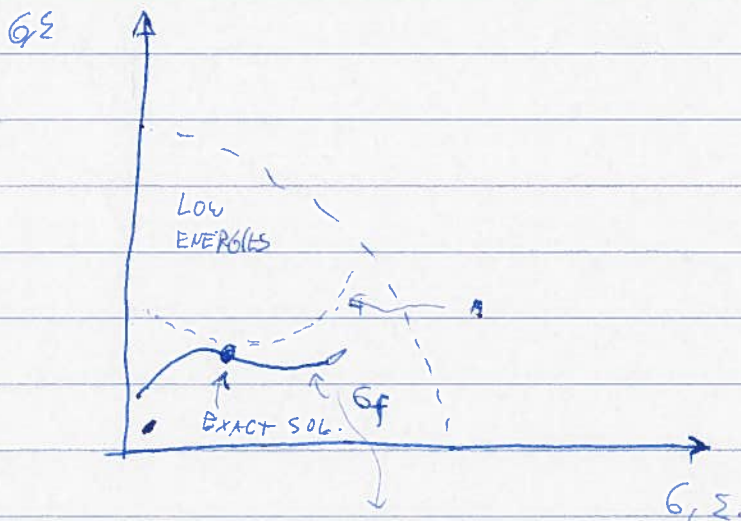 σ,ε
LOW
ENERGIES
EXACT SOL.
σf
σ, ε.